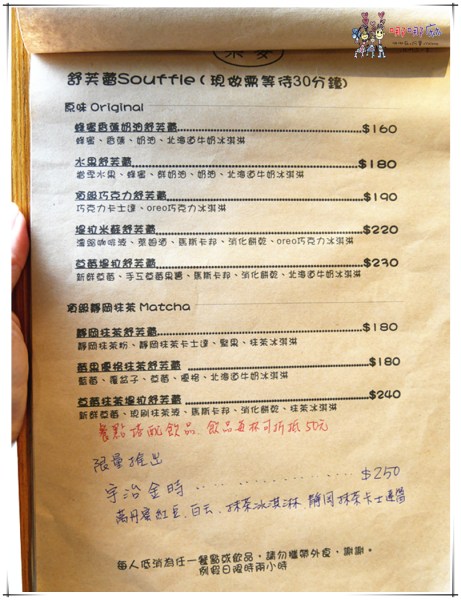 舒芙蕾Souffle(現做需等待30分鐘)
原味 Original
蜂蜜香蕉奶油舒芙蕾 $160
蜂蜜、香蕉、奶油、北海道牛奶冰淇淋
水果舒芙蕾 $180
當季水果、蜂蜜、鮮奶油、奶油、北海道牛奶冰淇淋
頂級巧克力舒芙蕾 $190
巧克力卡士達、oreo巧克力冰淇淋
提拉米蘇舒芙蕾 $220
濃縮咖啡液、萊姆酒、馬斯卡邦、消化餅乾、oreo巧克力冰淇淋
草莓提拉舒芙蕾 $230
新鮮草莓、手工草莓果醬、馬斯卡邦、消化餅乾、北海道牛奶冰淇淋
頂級靜岡抹茶 Matcha
靜岡抹茶舒芙蕾 $180
靜岡抹茶粉、靜岡抹茶卡士達、堅果、抹茶冰淇淋
莓果優格抹茶舒芙蕾 $180
藍莓、覆盆子、草莓、優格、北海道牛奶冰淇淋
草莓抹茶提拉舒芙蕾 $240
新鮮草莓、現刷抹茶液、馬斯卡邦、消化餅乾、抹茶冰淇淋
餐點搭配飲品、飲品每杯可折抵50元
限量推出
宇治金時 ................ $250
萬丹蜜紅豆、白玉、抹茶冰淇淋、靜岡抹茶卡士達醬
每人低消為任一餐點或飲品，請勿攜帶外食，謝謝。
例假日限時兩小時